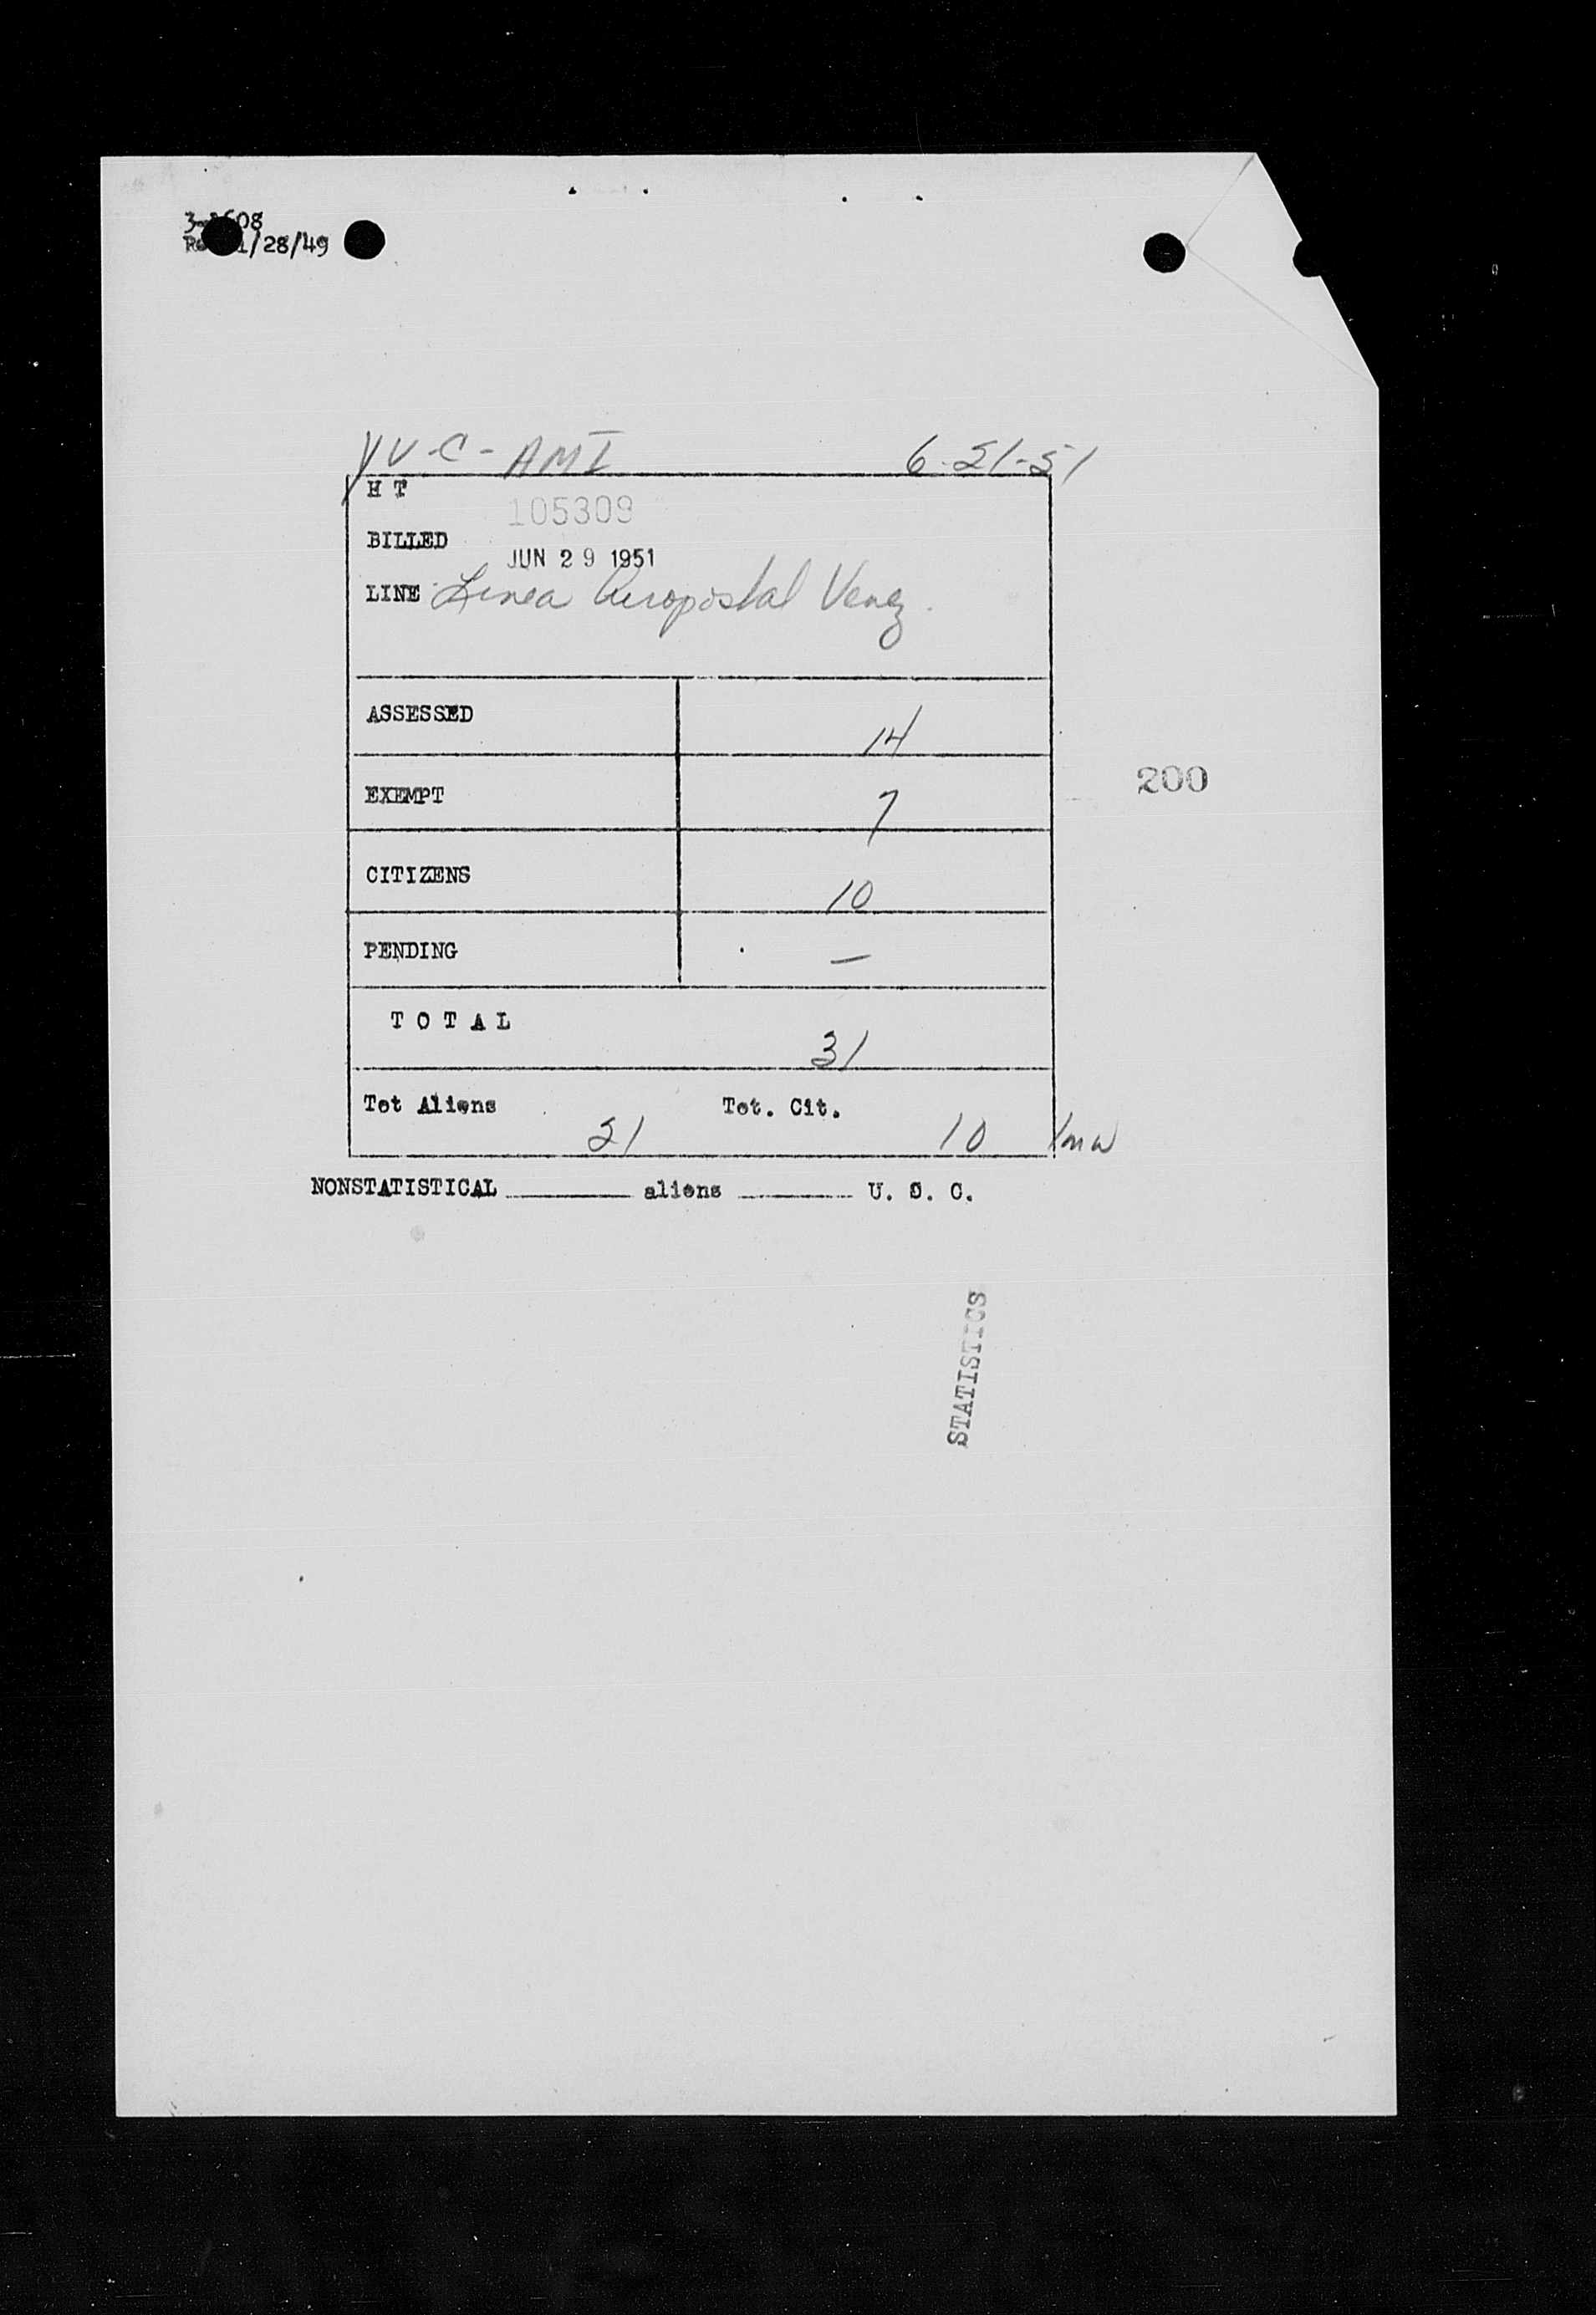 1/28/49
YV-C-AMI 6-21-51
H T
105309
BILLED
JUN 29 1951
LINE Linea Aeropostal Venez.
ASSESSED 14
EXEMPT 7
200
CITIZENS 10
PENDING —
T O T A L 31
Tot Aliens 21 Tot. Cit. 10
NONSTATISTICAL ______ aliens ______ U. S. C.
STATISTICS